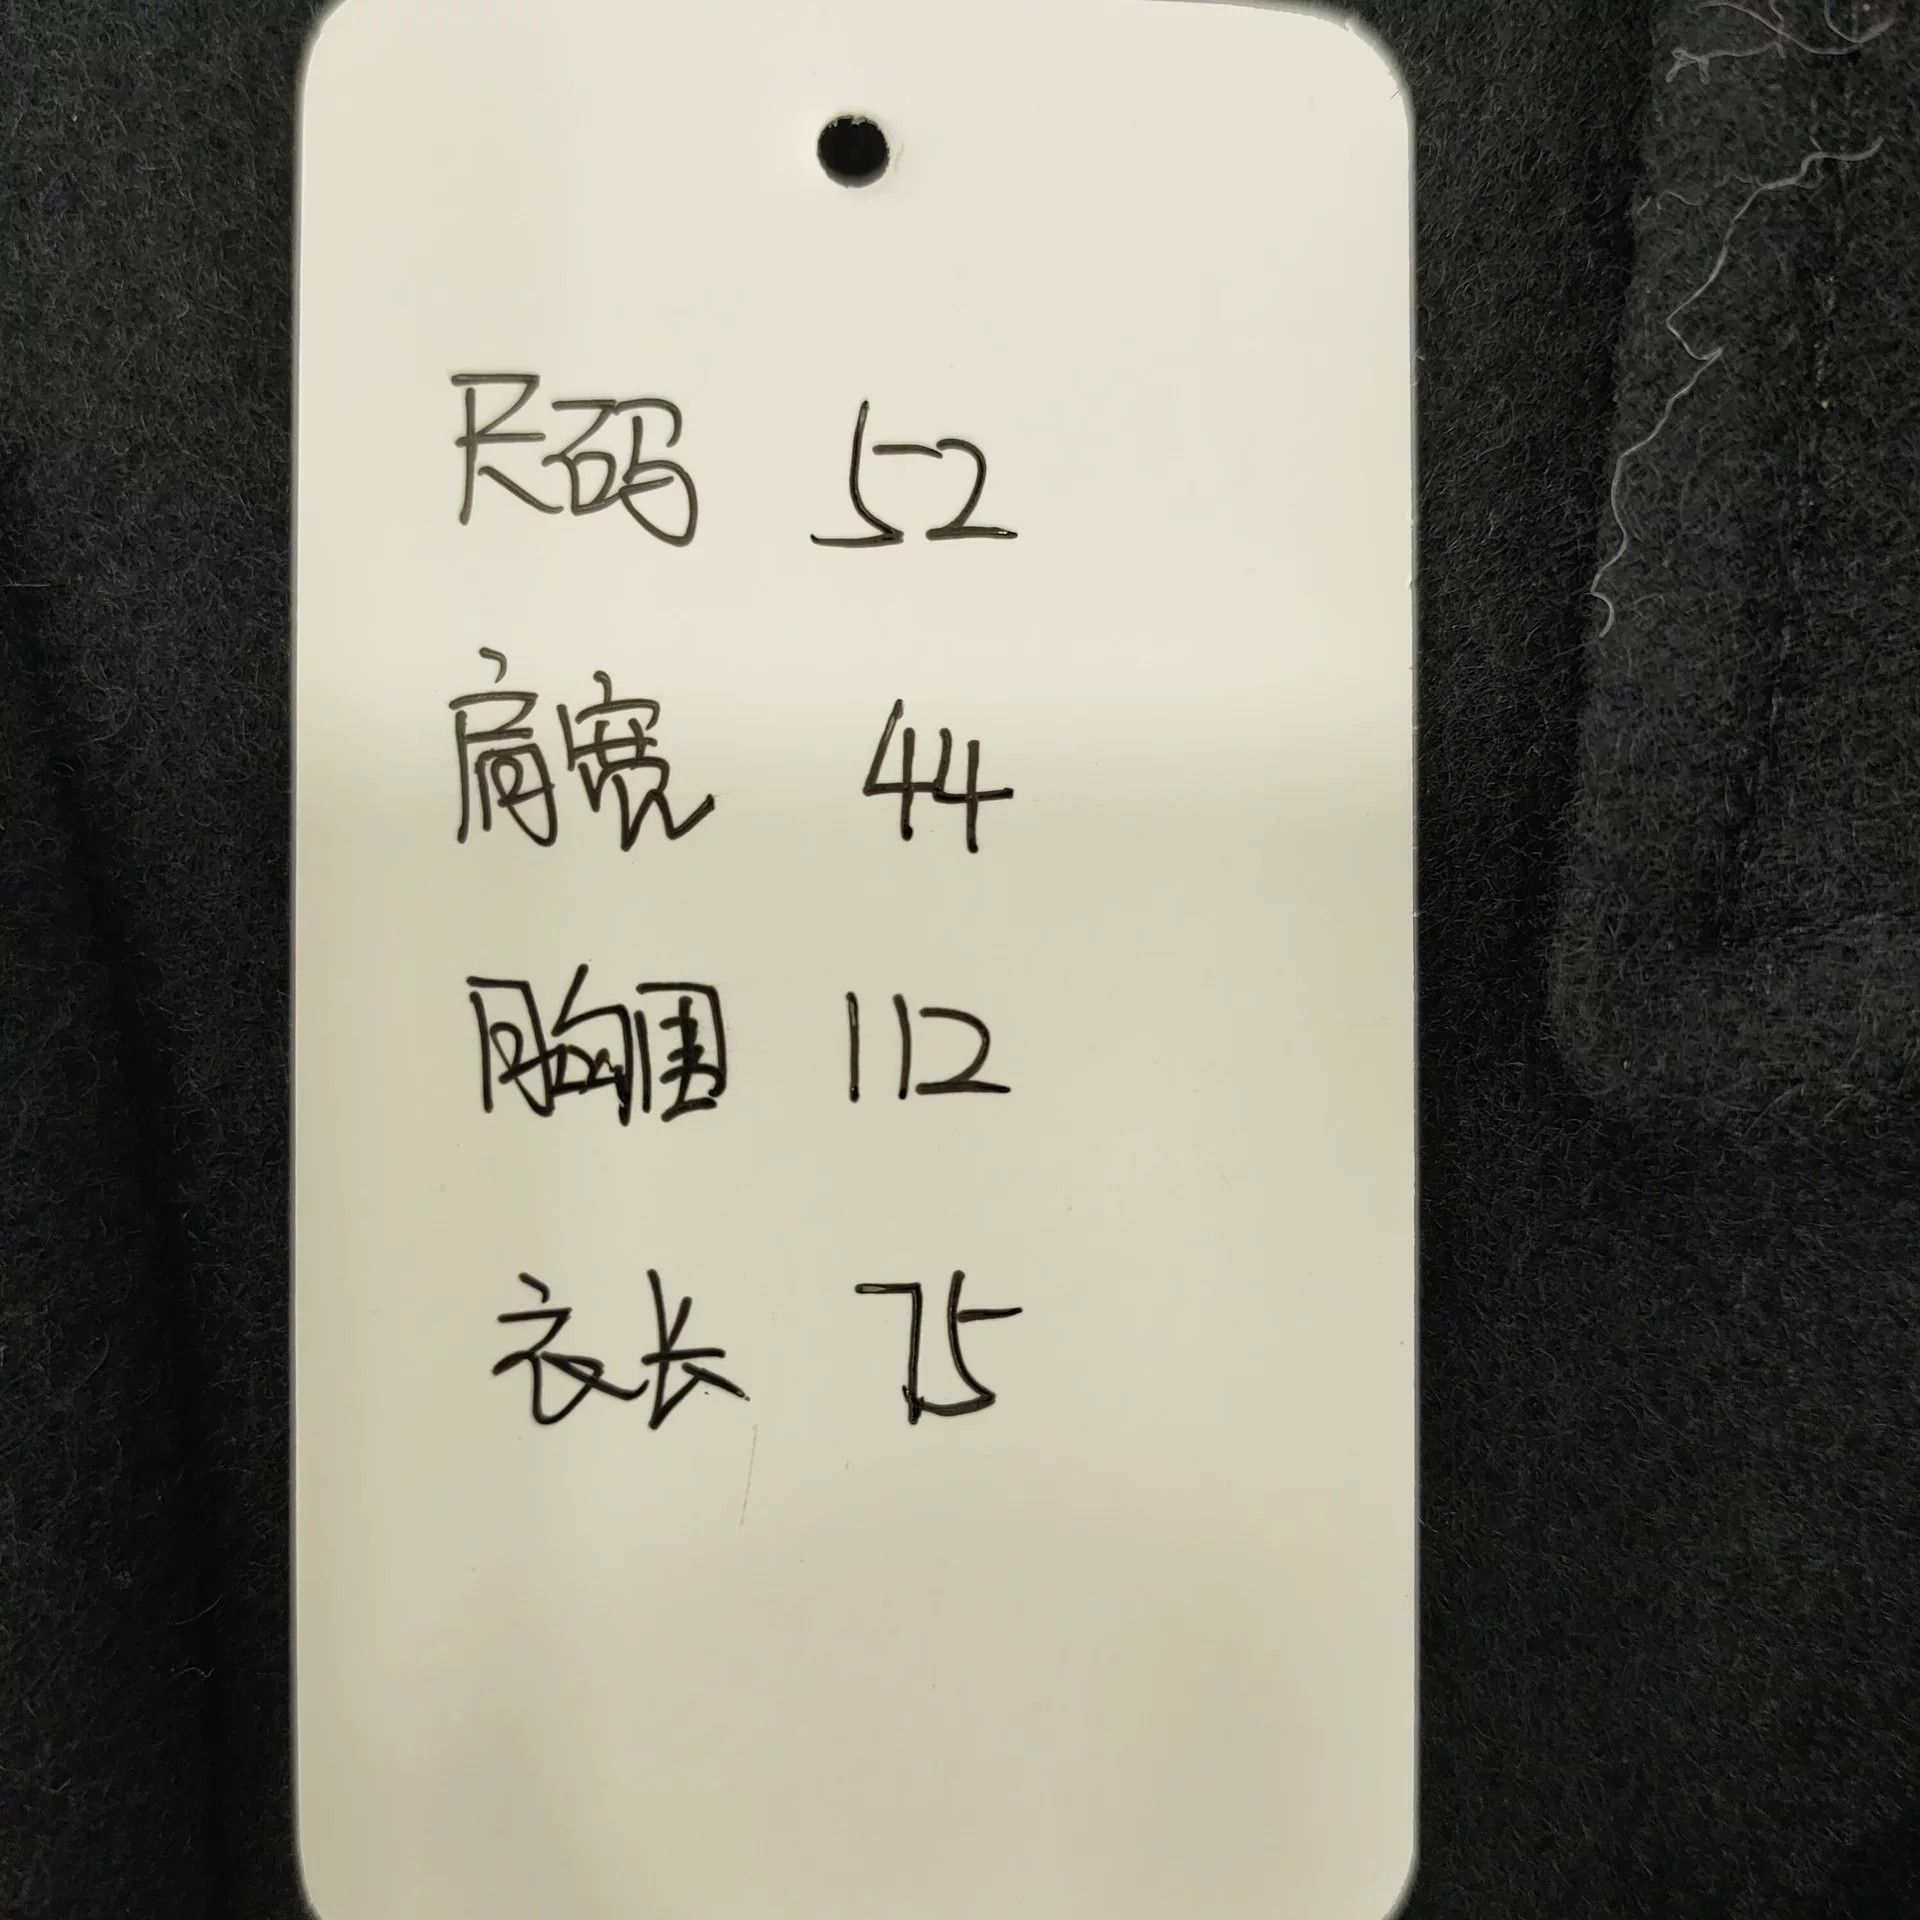 尺码 52
肩宽 44
胸围 112
衣长 75